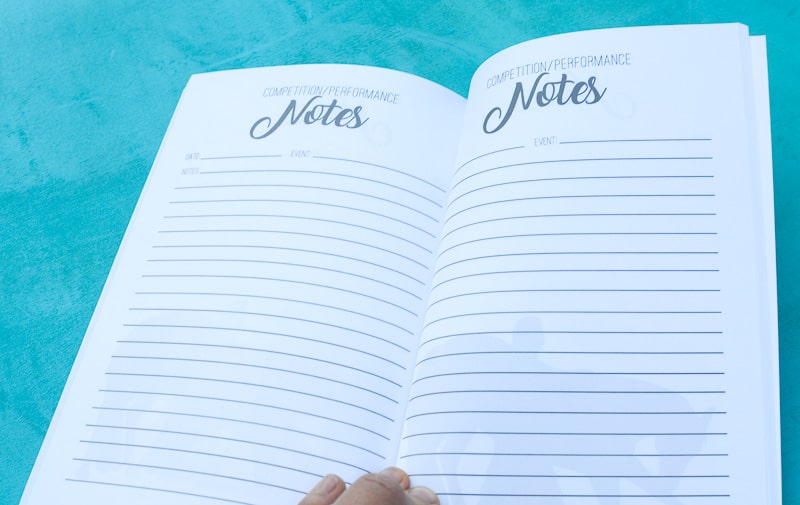 COMPETITION/PERFORMANCE
Notes
DATE: EVENT:
NOTES:
COMPETITION/PERFORMANCE
Notes
EVENT: